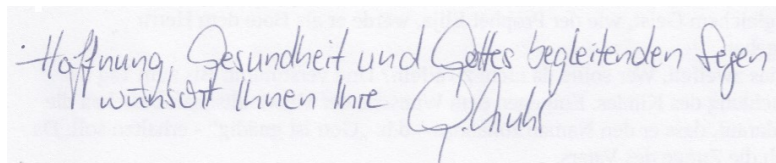 Hoffnung, Gesundheit und Gottes begleitenden Segen
wünscht Ihnen Ihre